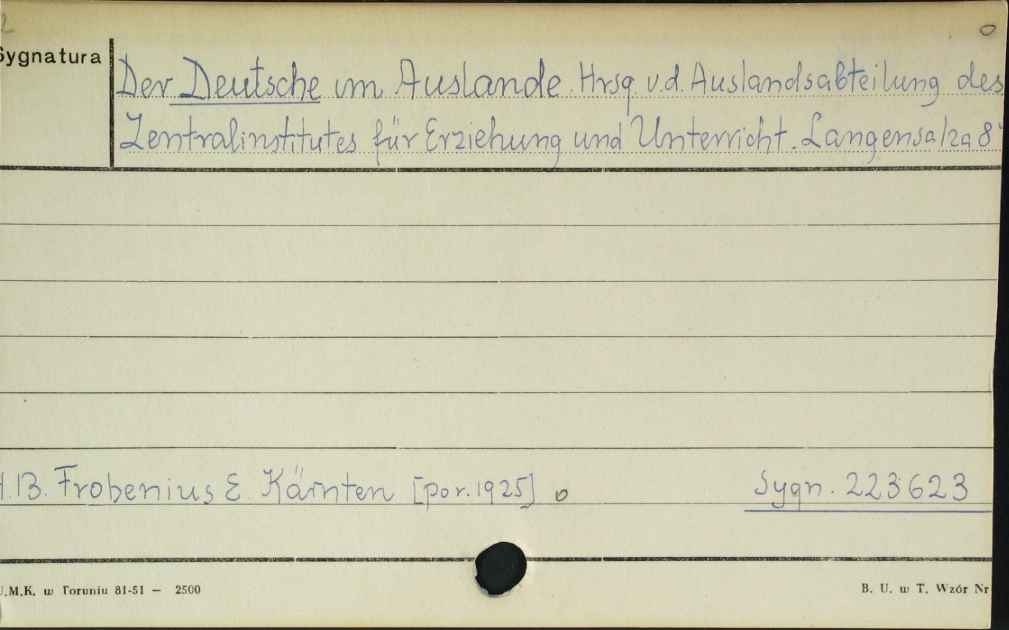 Sygnatura
Der Deutsche im Auslande. Hrsg. v.d. Auslandsabteilung des
Zentralinstitutes für Erziehung und Unterricht. Langensalza 8°
H.13. Frobenius E. Kärnten [por. 1925]
Sygn. 223623
U.M.K. w Toruniu 81-51 — 2500
B. U. w T. Wzór Nr